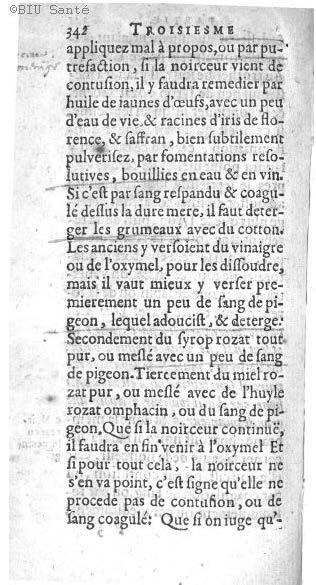 ©BIU Santé
342 TROISIESME
appliquez mal à propos, ou par pu-
trefaction, si la noirceur vient de
contusion, il y faudra remedier par
huile de iaunes d'œufs, avec un peu
d'eau de vie & racines d'iris de flo-
rence, & saffran, bien subtilement
pulverisez, par fomentations reso-
lutives, bouillies en eau & en vin.
Si c'est par sang respandu & coagu-
lé dessus la dure mere, il faut deter-
ger les grumeaux avec du cotton.
Les anciens y versoient du vinaigre
ou de l'oxymel, pour les dissoudre,
mais il vaut mieux y verser pre-
mierement un peu de sang de pi-
geon, lequel adoucist, & deterge.
Secondement du syrop rozat tout
pur, ou meslé avec un peu de sang
de pigeon. Tiercement du miel ro-
zat pur, ou meslé avec de l'huyle
rozat omphacin, ou du sang de pi-
geon, Que si la noirceur continuë,
il faudra en fin venir à l'oxymel Et
si pour tout cela, la noirceur ne
s'en va point, c'est signe qu'elle ne
procede pas de contusion, ou de
sang coagulé: Que si on iuge qu'-